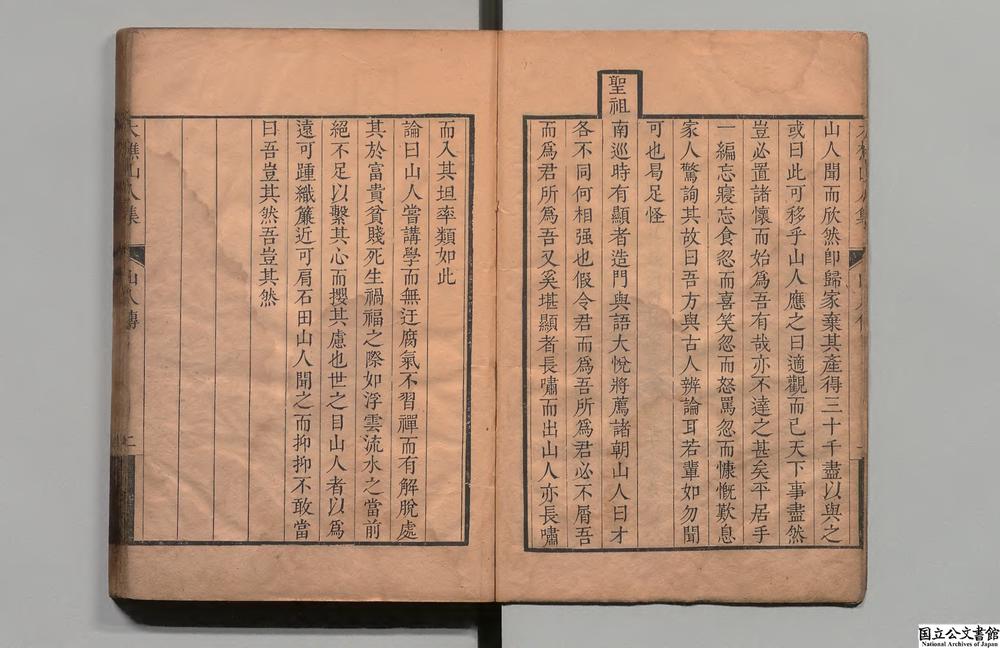 山人聞而欣然卽歸家棄其產得三十千盡以與之
或曰此可移乎山人應之曰適觀而已天下事盡然
豈必置諸懷而始爲吾有哉亦不達之甚矣平居手
一編忘寢忘食忽而喜笑忽而怒罵忽而慷慨歎息
家人驚詢其故曰吾方與古人辨論耳若輩如勿聞
可也曷足怪
聖祖南巡時有顯者造門與語大悅將薦諸朝山人曰才
各不同何相强也假令君而爲吾所爲君必不屑吾
而爲君所爲吾又奚堪顯者長嘯而出山人亦長嘯
而入其坦率類如此
論曰山人嘗講學而無迂腐氣不習禪而有解脫處
其於富貴貧賤死生禍福之際如浮雲流水之當前
絕不足以繫其心而攖其慮也世之目山人者以爲
遠可踵織簾近可肩石田山人聞之而抑抑不敢當
曰吾豈其然吾豈其然
山人集
山人傳
二
国立公文書館
National Archives of Japan